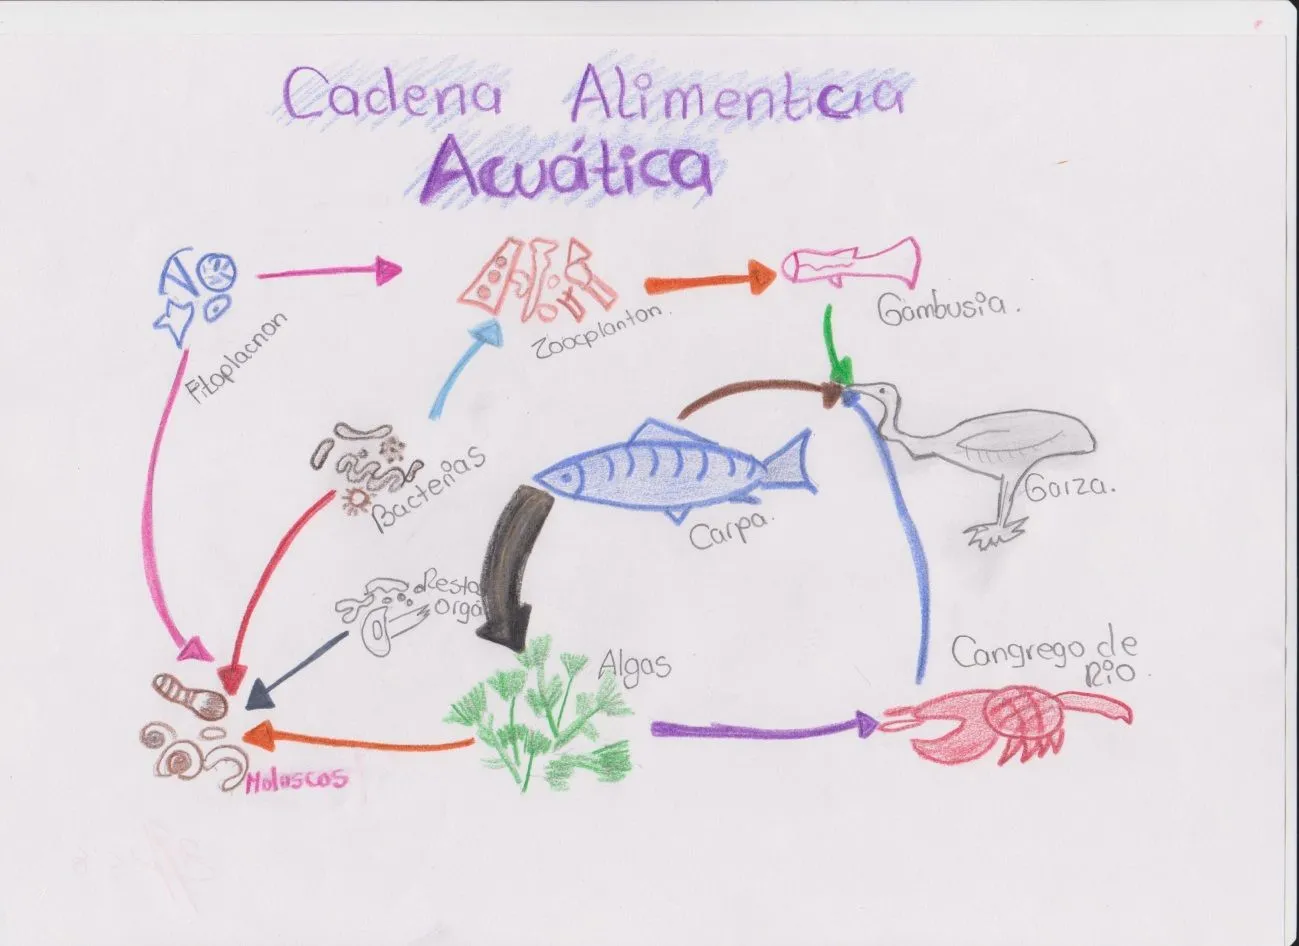 Cadena Alimenticia
Acuática
Fitoplacnon
Zoocplanton.
Gambusia.
Bacterias
Carpa.
Garza.
Resta
orgá
Algas
Cangrego de
Rio.
Moloscos